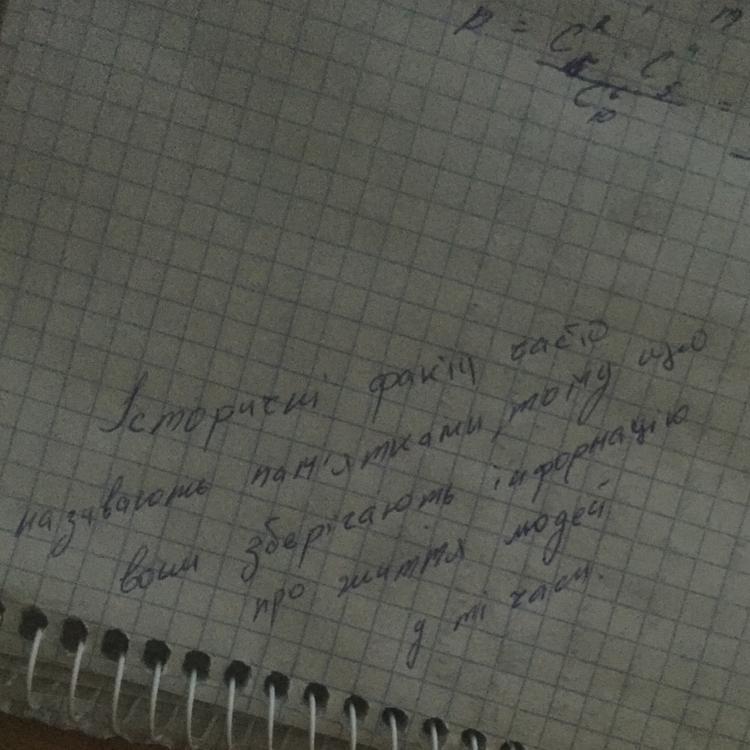 p =
Історичні факти часто
називають пам'ятками, тому що
вони зберігають інформацію
про життя людей
у ті часи.